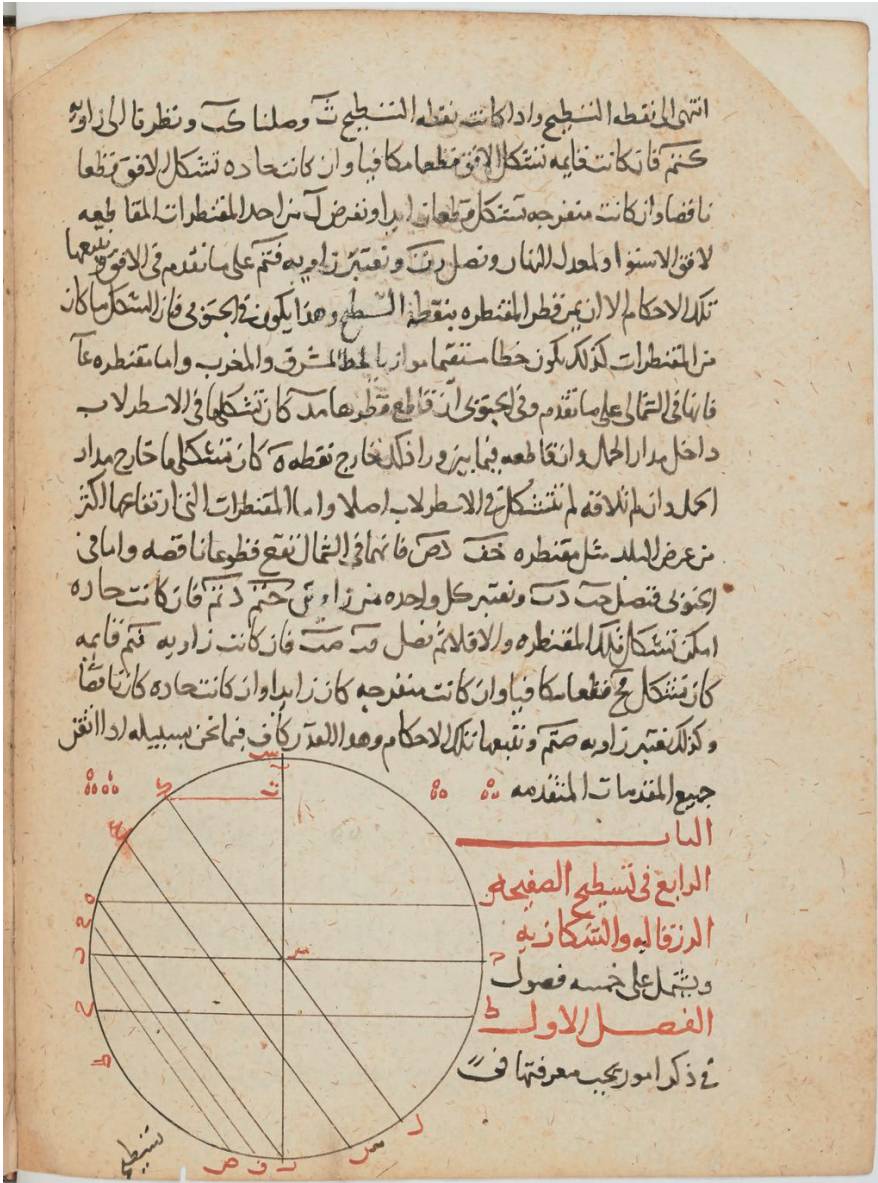 انتهى الى نقطه التسطيح واذا كانت نقطه التسطيح ت وصلنا كب ونظرنا الى زاويه
كتم فان كانت قايمه تشكل الافق قطعا مكافيا وان كانت حاده تشكل الافق قطعا
ناقصا وان كانت منفرجه تشكل قطعا زايدا ونفرض ل من احد المقنطرات المقاطعه
لافق الاستوا ولمعدل النهار ونصل ونعتبر زاويه فتم على ما تقدم فى الافق وتتبعها
تلك الاحكام الا ان يمر قطر المقنطره بنقطه التسطيح وهذا يكون فى الجنوبى فان الشكل ما كان
من المقنطرات كذلك يكون خطا مستقيما موازيا لخط المشرق والمغرب واما مقنطره ع
فانها فى الشمالى على ما تقدم وفى الجنوبى ان قاطع قطرها مد كان تشكلها فى الاسطرلاب
داخل مدار الحمل وان قاطعه فيما بين ر وذلك خارج نقطه ه كان تشكلها خارج مدار
الحمل وان لم تلاقه لم تتشكل فى الاسطرلاب اصلا واما المقنطرات التى ارتفاعها اكثر
من عرض البلد مثل مقنطره حف دص فانهما فى الشمال تقع قطوعا ناقصه واما فى
الجنوبى فنصل حب دب ونعتبر كل واحده من زاويتى حتم دتم فان كانت حاده
امكن تشكل تلك المقنطره والا فلا ثم نصل فب صب فان كانت زاويه فتم قايمه
كان تشكل قطعا مكافيا وان كانت منفرجه كان زايدا وان كانت حاده كان ناقصا
وكذلك نعتبر زاويه صتم ونتبعها تلك الاحكام وهذا القدر كاف فيما نحن بسبيله اذا اتقن
جميع المقدمات المتقدمه
الباب
الرابع فى تسطيح الصفيحه
الزرقاليه والشكازيه
ويشتمل على خمسه فصول
الفصل الاول
فى ذكر امور يجب معرفتها فى
تسطيح